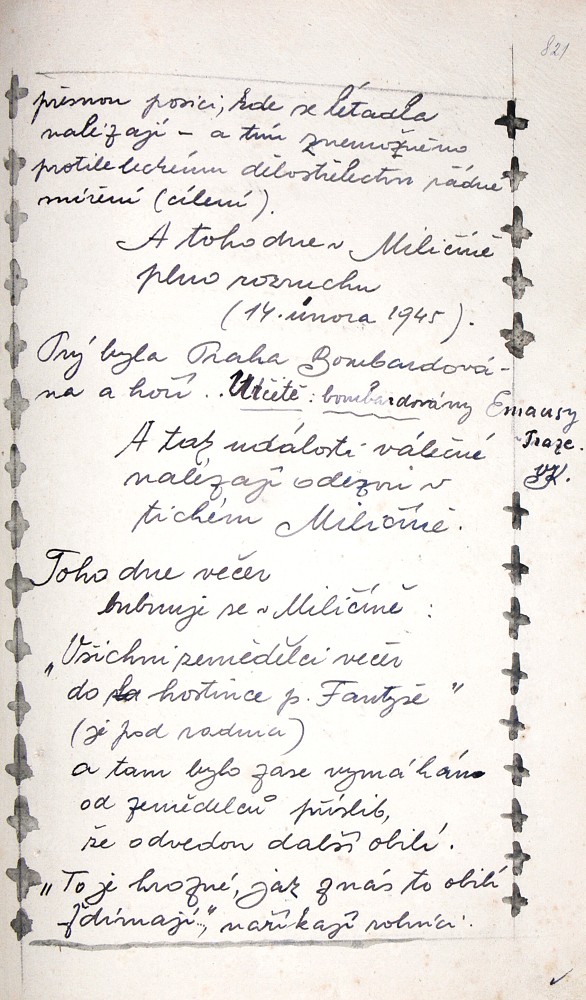 821
přesnou posici, kde se létadla
nalézají – a tím znemožněno
protileteckému dělostřelectvu řádné
míření (cílení).
A toho dne v Miličíně
plno rozruchu
(14. února 1945).
Prý byla Praha Bombardová-
na a hoří .. Určitě: bombardovány Emausy
Praze.
A tak události válečné
nalézají odezvu v
tichém Miličíně.
Toho dne večer
bubnuje se v Miličíně :
„Všichni zemědělci večer
do hostince p. Fantyše "
(je pod radnicí)
a tam bylo zase vymáháno
od zemědělců příslib,
že odvedou další obilí.
„To je hrozné, jak z nás to obilí
ždímají", naříkají rolníci.